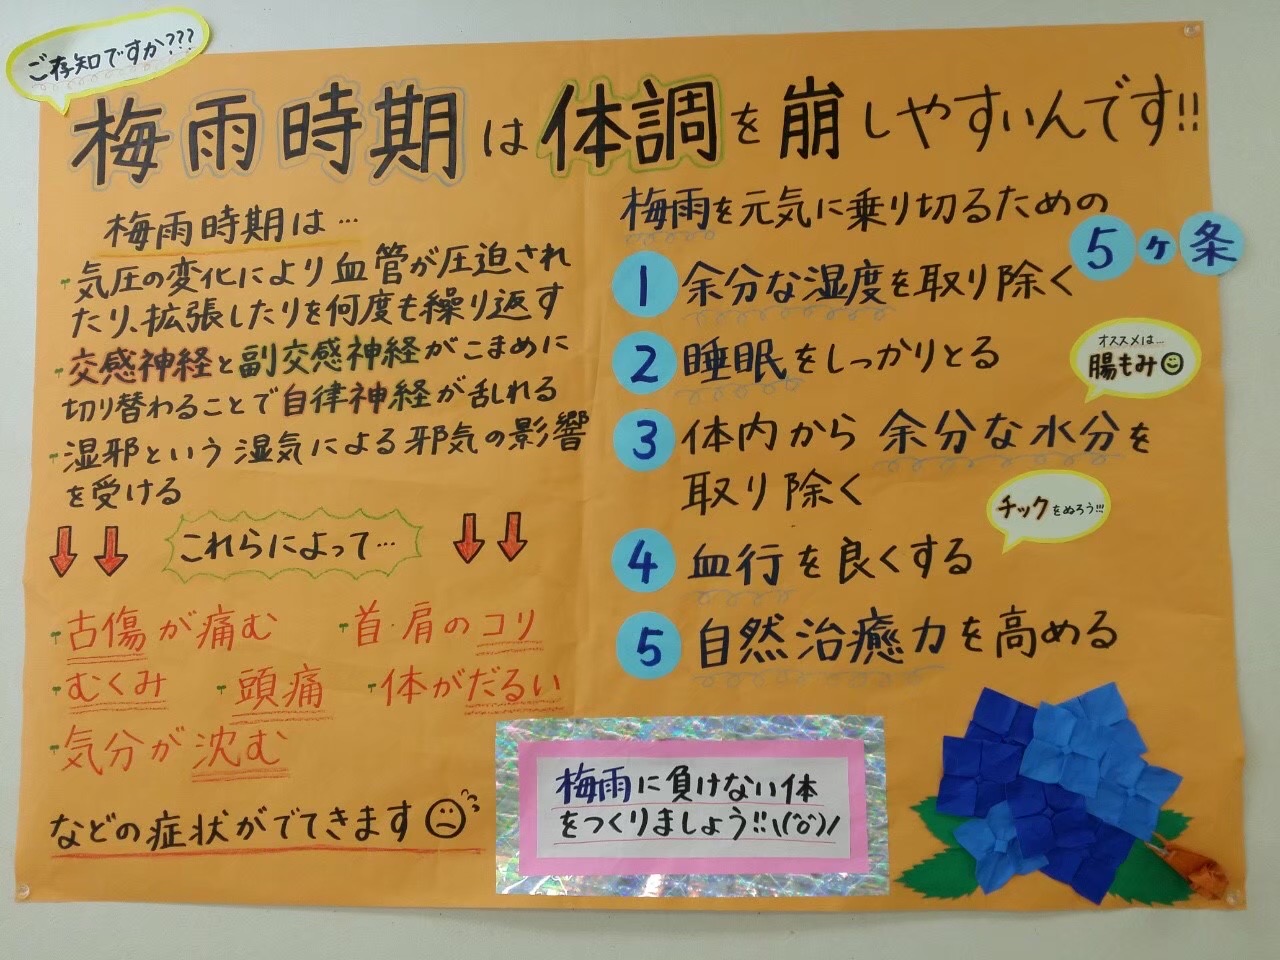 ご存知ですか???
梅雨時期は体調を崩しやすいんです!!
梅雨時期は…
・気圧の変化により血管が圧迫され
たり、拡張したりを何度も繰り返す
・交感神経と副交感神経がこまめに
切り替わることで自律神経が乱れる
・湿邪という湿気による邪気の影響
を受ける
これらによって…
・古傷が痛む ・首・肩のコリ
・むくみ ・頭痛 ・体がだるい
・気分が沈む
などの症状がでてきます
梅雨を元気に乗り切るための
5ヶ条
1 余分な湿度を取り除く
2 睡眠をしっかりとる
オススメは…
腸もみ
3 体内から余分な水分を
取り除く
チックをぬろう!!!
4 血行を良くする
5 自然治癒力を高める
梅雨に負けない体
をつくりましょう!!\(^o^)/